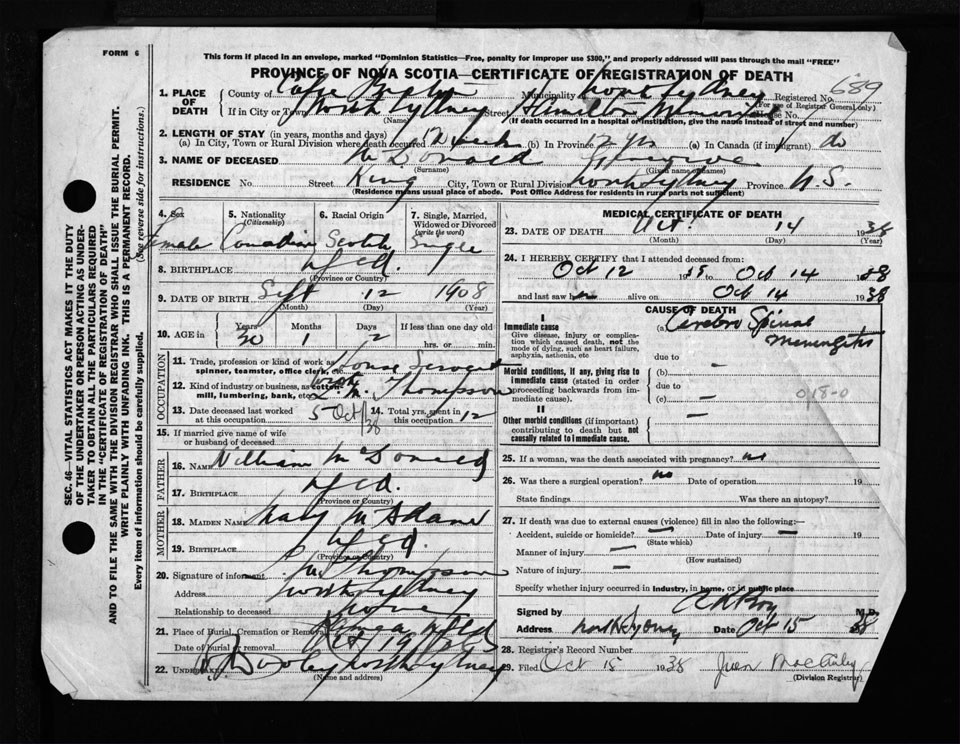 FORM 6
This form if placed in an envelope, marked "Dominion Statistics—Free, penalty for improper use $300," and properly addressed will pass through the mail "FREE"
PROVINCE OF NOVA SCOTIA—CERTIFICATE OF REGISTRATION OF DEATH
SEC. 46—VITAL STATISTICS ACT MAKES IT THE DUTY
OF THE UNDERTAKER OR PERSON ACTING AS UNDER-
TAKER TO OBTAIN ALL THE PARTICULARS REQUIRED
IN THE "CERTIFICATE OF REGISTRATION OF DEATH"
AND TO FILE THE SAME WITH THE DIVISION REGISTRAR WHO SHALL ISSUE THE BURIAL PERMIT.
WRITE PLAINLY WITH UNFADING INK. THIS IS A PERMANENT RECORD.
Every item of information should be carefully supplied. (See reverse side for instructions.)
1. PLACE OF DEATH County of Cape Breton Municipality North Sydney Registered No. 689
(For use of Registrar General only)
If in City or Town North Sydney Street Hamilton Memorial
(Name) (If death occurred in a hospital or institution, give the name instead of street and number)
2. LENGTH OF STAY (in years, months and days)
(a) In City, Town or Rural Division where death occurred (b) In Province 12 yrs (c) In Canada (if immigrant) do
3. NAME OF DECEASED McDonald
(Surname) (Given name or names)
RESIDENCE No. Street King City, Town or Rural Division North Sydney Province N.S.
(Residence means usual place of abode. Post Office Address for residents in rural parts not sufficient)
4. Sex 5. Nationality (Citizenship) 6. Racial Origin 7. Single, Married, Widowed or Divorced (write the word)
Female Canadian Scotch Single
8. BIRTHPLACE Nfld.
(Province or Country)
9. DATE OF BIRTH Sept 12 1908
(Month) (Day) (Year)
10. AGE in Years 30 Months 1 Days 2 If less than one day old
hrs. or min.
OCCUPATION
11. Trade, profession or kind of work as spinner, teamster, office clerk, etc. House Servant
12. Kind of industry or business, as cotton mill, lumbering, bank, etc. with L. M. Thompson
13. Date deceased last worked at this occupation 5 Oct/38 14. Total yrs. spent in this occupation 12
15. If married give name of wife or husband of deceased
FATHER
16. NAME William McDonald
17. BIRTHPLACE Nfld.
(Province or Country)
MOTHER
18. MAIDEN NAME Mary
19. BIRTHPLACE Nfld.
(Province or Country)
20. Signature of informant Thompson
Address North Sydney
Relationship to deceased None
21. Place of Burial, Cremation or Removal Nfld
Date of burial or removal Oct
22. UNDERTAKER Dooley North Sydney
(Name and address)
MEDICAL CERTIFICATE OF DEATH
23. DATE OF DEATH Oct. 14 1938
(Month) (Day) (Year)
24. I HEREBY CERTIFY that I attended deceased from:
Oct 12 1938 to Oct 14 1938
and last saw h alive on Oct 14 1938
CAUSE OF DEATH
I
Immediate cause
Give disease, injury or complication which caused death, not the mode of dying, such as heart failure, asphyxia, asthenia, etc
(a) Cerebro Spinal Meningitis
due to
Morbid conditions, if any, giving rise to immediate cause (stated in order proceeding backwards from immediate cause).
(b) —
due to
(c) —
018-0
II
Other morbid conditions (if important) contributing to death but not causally related to immediate cause.
25. If a woman, was the death associated with pregnancy? no
26. Was there a surgical operation? no Date of operation 19
State findings Was there an autopsy?
27. If death was due to external causes (violence) fill in also the following:—
Accident, suicide or homicide? — Date of injury — 19
(State which)
Manner of injury —
(How sustained)
Nature of injury —
Specify whether injury occurred in Industry, in home, or in public place
Signed by M.D.
Address North Sydney Date Oct 15 38
28. Registrar's Record Number
29. Filed Oct 15 1938
(Division Registrar)